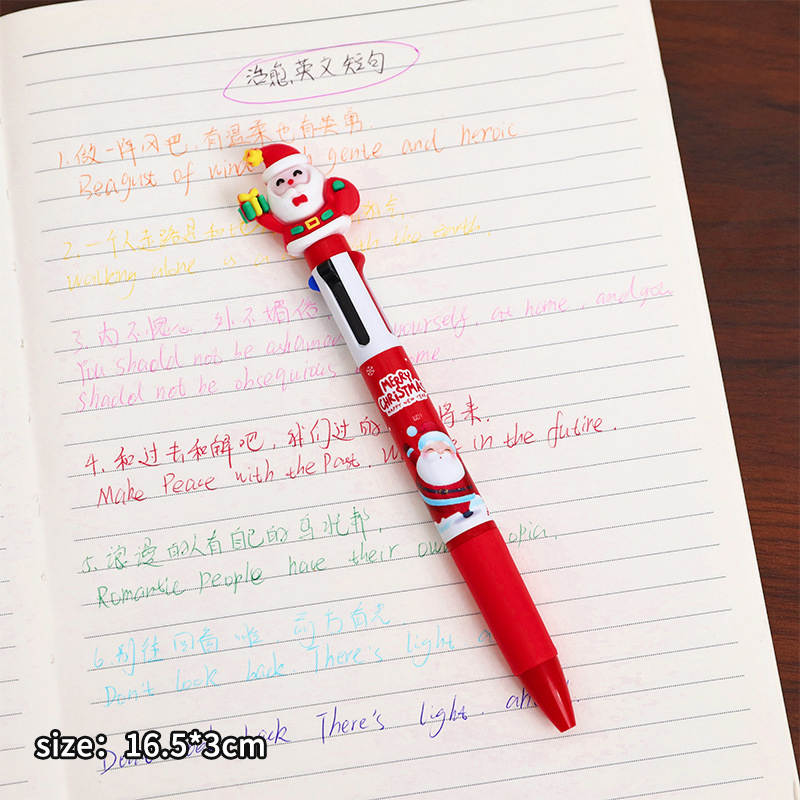 治愈英文短句
1.做一阵风吧,有温柔也有英勇.
Beagust of wind genie and heroic
2.一个人走路是和
walking alone is a the earth.
3.内不愧心,外不媚俗
You shadd not be yourself, at home, and you
shadd not be obsequious ome.
4.和过去和解吧,我们过的 将来.
Make Peace with the Past. in the futire.
5.浪漫的人有自己的乌托邦,
Romantic People have their own opia.
6.别往回看啦,前方有光
Don't look back. There's light
back There's light.
MERRY CHRISTMAS
HAPPY NEW YEAR
size: 16.5*3cm